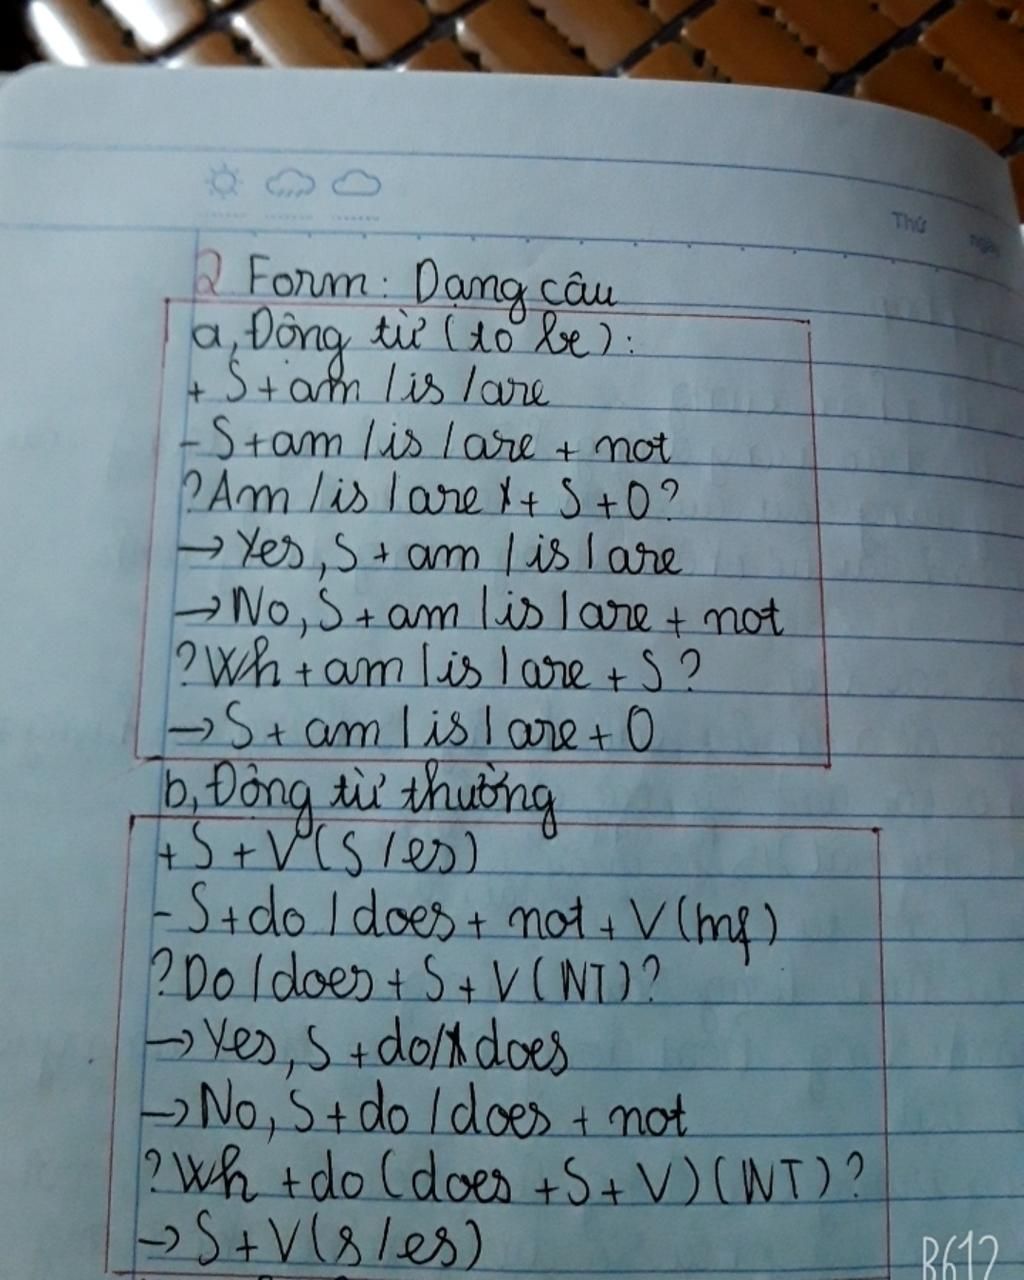 Thứ
ngày
2 Form: Dạng câu
a, Động từ (to be):
+ S + am / is / are
- S + am / is / are + not
? Am / is / are + S + O?
→ Yes, S + am / is / are
→ No, S + am / is / are + not
? Wh + am / is / are + S ?
→ S + am / is / are + O
b, Động từ thường
+ S + V (s / es)
- S + do / does + not + V (inf)
? Do / does + S + V (INT)?
→ Yes, S + do / does
→ No, S + do / does + not
? Wh + do (does + S + V) (INT) ?
→ S + V (s / es)
B612